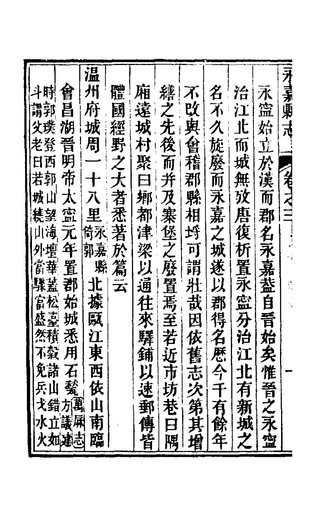 永嘉縣志 卷之三 一
永寧始立於漢而郡名永嘉葢自晉始矣惟晉之永寧
治江北而城無攷唐復析置永寧分治江北有新城之
名不久旋廢而永嘉之城遂以郡得名歷今千有餘年
不改與會稽郡縣相埒可謂壯哉因依舊志次第其增
繕之先後而并及寨堡之廢置焉至若近市坊巷曰隅
廂遠城村聚曰鄕都津梁以通往來驛鋪以速郵傳皆
體國經野之大者悉著於篇云
溫州府城周一十八里永嘉縣倚郭北據甌江東西依山南臨
會昌湖晉明帝太寧元年置郡始城悉用石甃萬厯志方議建
時郭璞登西郭山望海壇華葢松臺積穀諸山錯立如
斗謂父老曰若城繞山外當驟富盛然不免兵戈水火